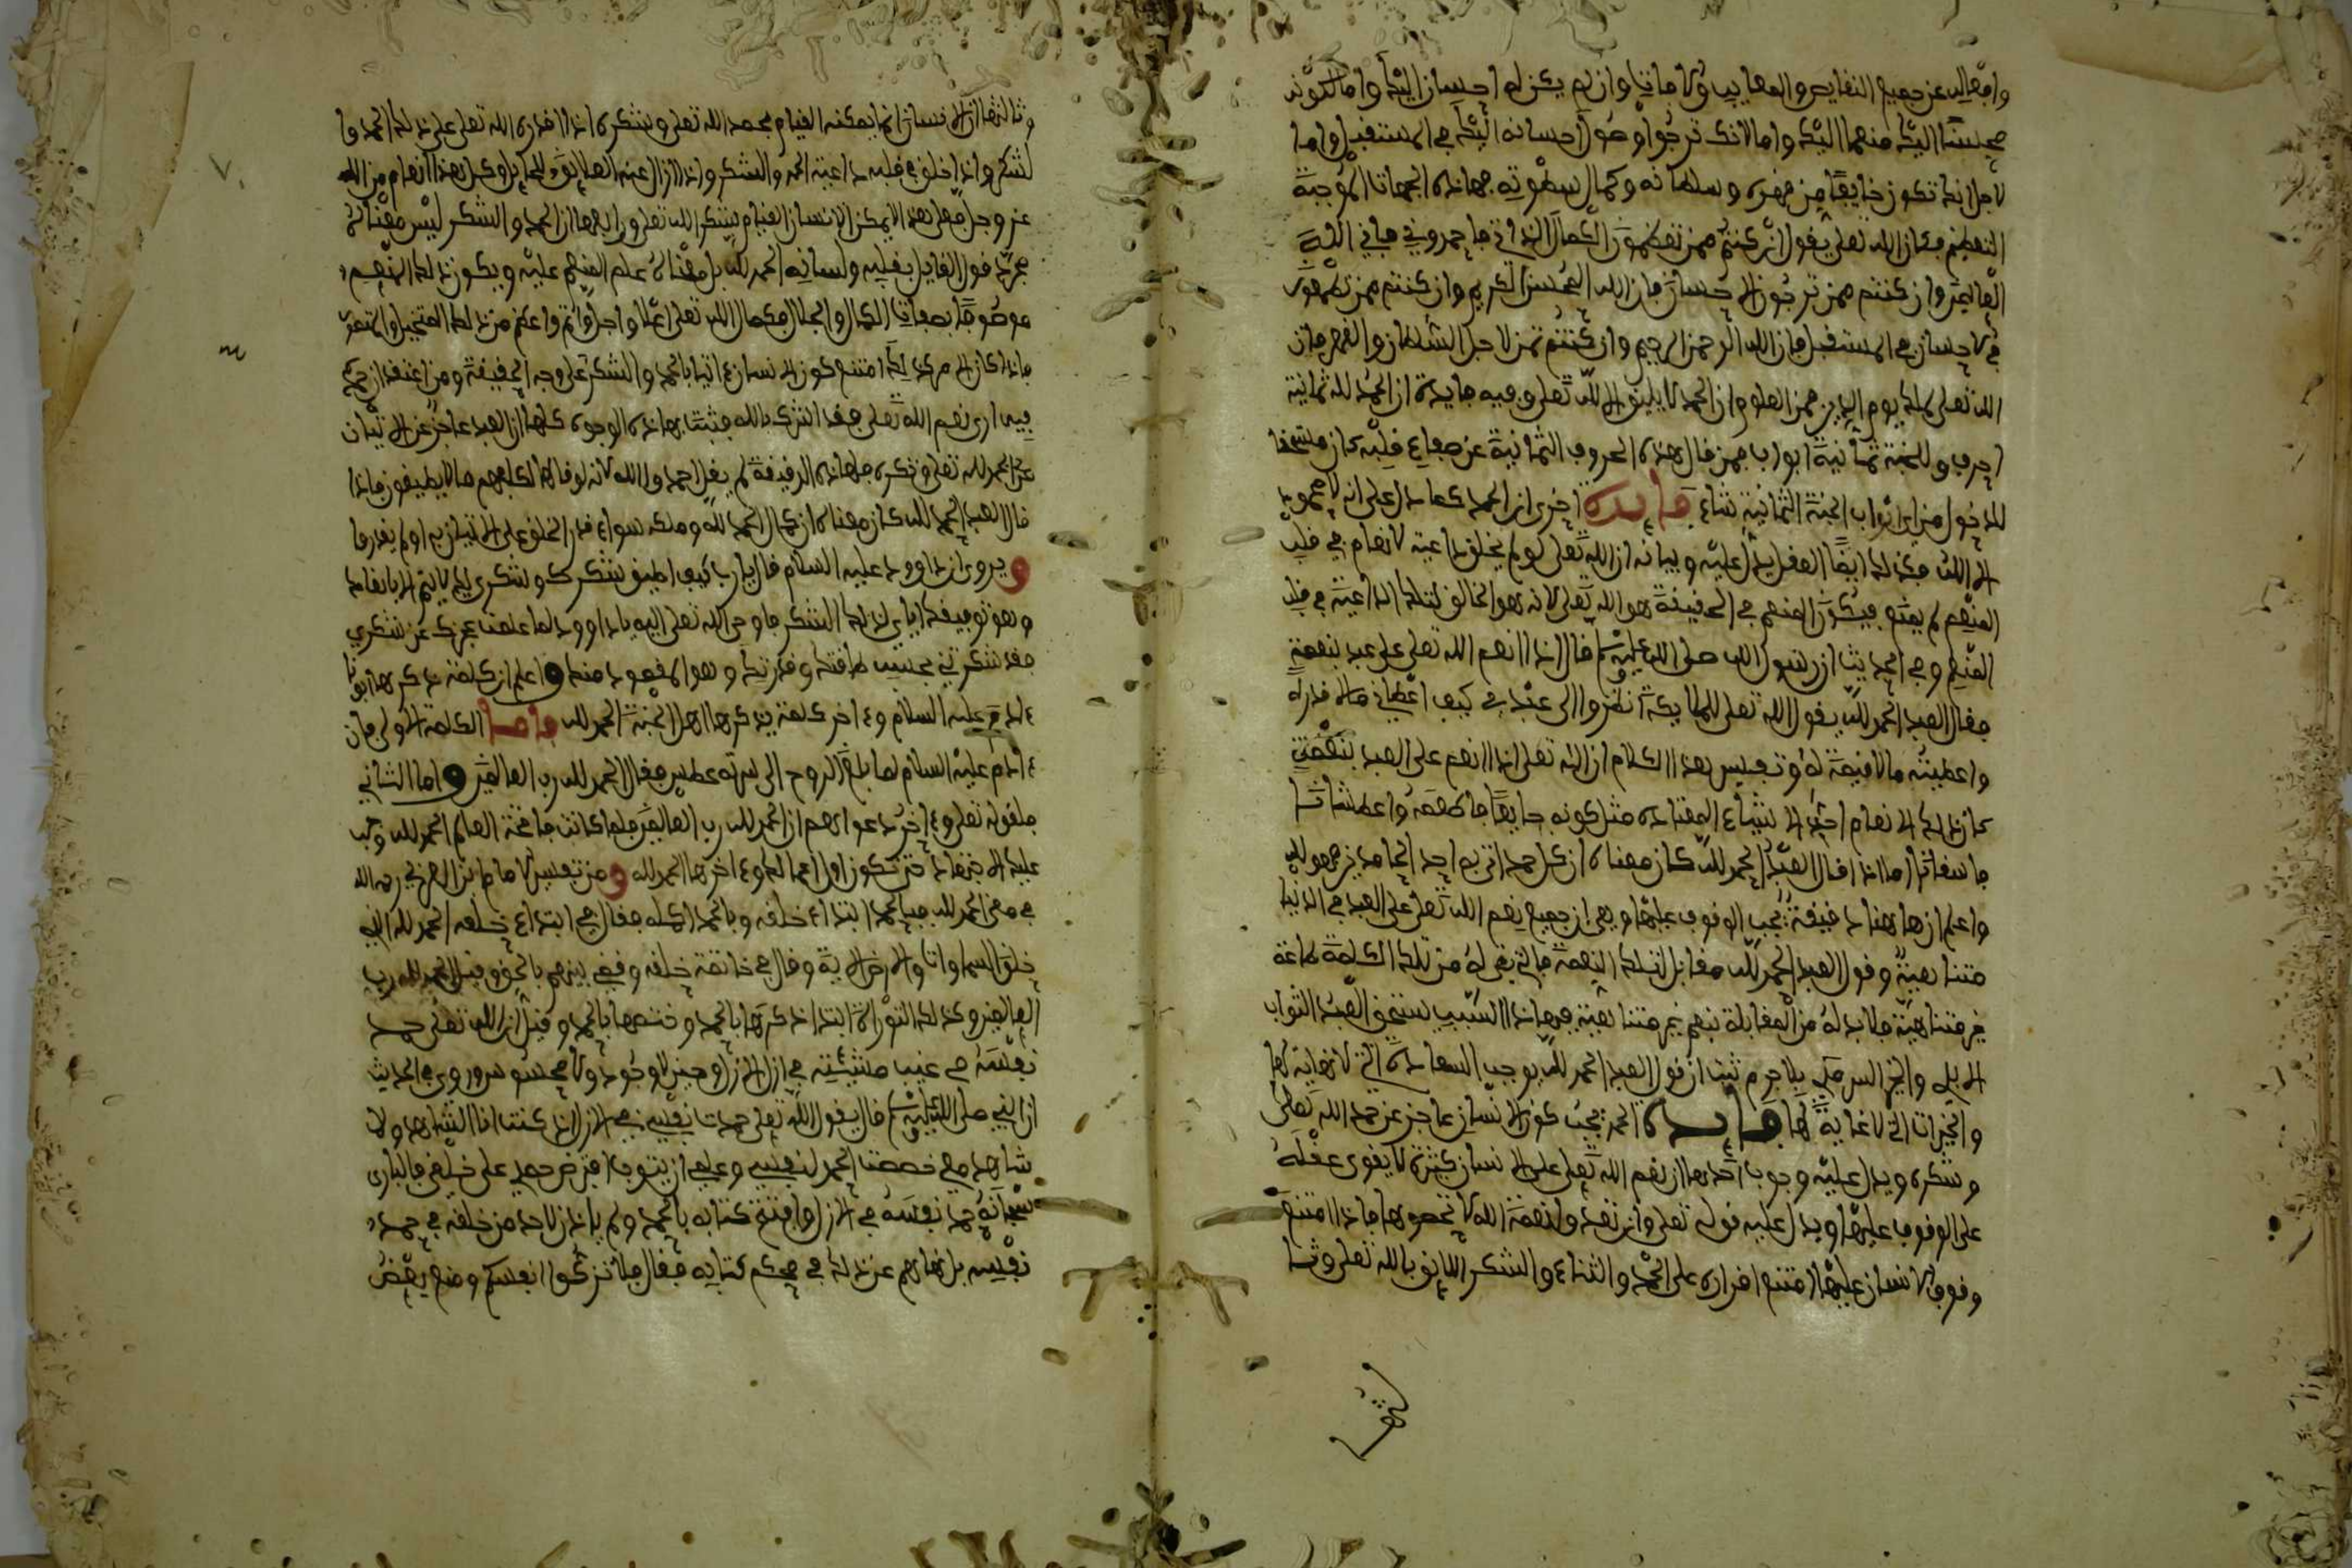 وأفعاله عن جميع النقايص والمعايب والآفات وإن لم يكن له إحسان إليك وإما لكونه
محسنا إليك منعما إليك وإما لأنك ترجوا وصول إحسانه إليك في المستقبل وإما
لأجل أنك تكون خايفا من قهره وسلطانه وكمال سطوته فهاذه الجهات الموجبة
للتعظيم فكأن الله تعلى يقول إن كنتم ممن تعظمون الكمال الذاتي فاحمدوني فإني إله
العالمين وإن كنتم ممن ترجون الإحسان فإن الله المحسن الكريم وإن كنتم ممن تطمعون
في الإحسان في المستقبل فإن الله الرحمن الرحيم وإن كنتم ممن لأجل السلطان والقهر فإن
الله تعلى ملك يوم الدين فمن المعلوم أن الحمد لا يليق إلا لله تعلى وفيه فايدة أن الحمد لله ثمانية
أحرف وللجنة ثمانية أبواب فمن قال هذه الحروف الثمانية عن صفاء قلبه كان مستحقا
للدخول من أي أبواب الجنة الثمانية شاء فايدة أخرى أن الحمد كما يدل على أنه لا محمود
إلا الله فكذلك أيضا العقل يدل عليه وبيانه أن الله تعلى لو لم يخلق داعية الإنعام في قلب
المنعم لم ينعم فيكون المنعم في الحقيقة هو الله تعلى لأنه هو الخالق لتلك الداعية في قلب
المنعم وفي الحديث أن رسول الله صلى الله عليه وسلم قال إذا أنعم الله تعلى على عبد بنعمة
فقال العبد الحمد لله يقول الله تعلى للملايكة انظروا إلى عبدي كيف أعطاني ما لا قدر له
وأعطيته ما لا قيمة له وتفسير هذا الكلام أن الله تعلى إذا أنعم على العبد بنعمة
كان ذلك الإنعام أحد الأشياء المعتاده مثل كونه جايعا فأطعمه وأعطشانا
فأسقاه أما إذا قال العبد الحمد لله كان معناه أن كل حمد أتى به أحد الحامدين فهو لله
واعلم أن هاهنا دقيقة يجب الوقوف عليها وهي أن جميع نعم الله تعلى على العبد في الدنيا
متناهية وقول العبد الحمد لله مقابل لتلك النعمة فالتي بقي له من تلك الكلمة طاعة
غير متناهية فلا بد له من المقابلة بنعم غير متناهية فبهاذا السبب يستحق العبد الثواب
الأبدي والخير السرمدي فلا جرم ثبت أن قول العبد الحمد لله يوجب السعادة التي لا نهاية لها
والخيرات التي لا غاية لها فايدة الحمد يجب كون الإنسان عاجز عن حمد الله تعلى
وشكره ويدل عليه وجوب أحدها أن نعم الله تعلى على الإنسان كثيرة لا يقوى عقله
على الوقوف عليها ويدل عليه قوله تعلى وإن تعدوا نعمة الله لا تحصوها فإذا امتنع
وقوف الإنسان عليها امتنع اقراره على الحمد والثناء والشكر اللايق بالله تعلى وثا
وثالثها أن الإنسان إنما يمكنه القيام بحمد الله تعلى وشكره إذا أقدره الله تعلى على ذلك الحمد وا
لشكر وإذا خلق في قلبه داعية الحمد والشكر وإذا أزال عنه العلايق والحايل وكل هذا إنعام من الله
عز وجل فعلى هذا لا يمكن الإنسان القيام بشكر الله تعلى ورابعها أن الحمد والشكر ليس معناه
مجرد قول القايل بقلبه ولسانه الحمد لله بل معناه علم المنعم عليه وبكون ذلك المنعم
موصوفا بصفات الكمال والجلال فكمال الله تعلى أعلا وأجل وأتم وأعظم من ذلك المتخيل والمتصور
فإذا كان الأمر كذلك امتنع كون الإنسان ءاتيا بالحمد والشكر على وجه الحقيقة ومن اعتقد أن حمده
فيما أرى نعم الله تعلى فقد أشرك بالله فثبت بهاذه الوجوه كلها أن العبد عاجز عن الإتيان
على الحمد لله تعلى وشكره فلهاذه الدقيقة لم يقل احمدوا الله لأنه لو قال لهم لكلفهم ما لا يطيقون فإذا
قال العبد الحمد لله كان معناه أن كمال الحمد لله وملكه سواء قدر الخلق على الإتيان به أو لم يقدروا
ويروى أن داوود عليه السلام قال يارب كيف أطيق شكرك وشكري لك لا يتم إلا بإنعامك
وهو توفيقك إياي لذلك الشكر فأوحى الله تعلى إليه ياداوود لما علمت عجزك عن شكري
فقد شكرتني بحسب طاقتك وقدرتك وهو المقصود منك واعلم أن كلمة ذكرها أبونا
ءادم عليه السلام وءاخر كلمة يذكرها أهل الجنة الحمد لله فأما الكلمة الأولى فإن
ءادم عليه السلام لما بلغ الروح إلى سرته عطس فقال الحمد لله رب العالمين وأما الثاني
فلقوله تعلى وءاخر دعواهم أن الحمد لله رب العالمين فلما كانت فاتحة العالم الحمد لله وجب
عليك الاجتهاد حتى تكون أول أعمالك وءاخرها الحمد لله ومن تفسير الإمام ابن العربي رحمه الله
في معنى الحمد لله فبالحمد ابتداء خلقه وبالحمد أكمله فقال في ابتداء خلقه الحمد لله الذي
خلق السماوات والأرض الآية وقال في خاتمة خلقه وقضي بينهم بالحق وقيل الحمد لله رب
العالمين وكذلك التوراة ابتدا ذكرها بالحمد وختمها بالحمد وقيل أن الله تعلى حمد
نفسه في غيب مشيئته في أزل الأزل وحين لا وجود ولا محسوس وروي في الحديث
أن النبي صلى الله عليه وسلم قال يقول الله تعلى حمدت نفسي في الأزل إذ كنت أنا الشاهد ولا
شاهد معي خصصت الحمد لنفسي وعلمي أن يتوبا افترض حمدي على خلقي فالباري
سبحانه حمد نفسه في الأزل وافتتح كتابه بالحمد ولم يأذن لأحد من خلقه في حمد
نفسه بل نهاهم عن ذلك في محكم كتابه فقال فلا تزكوا أنفسكم ومنع بعض